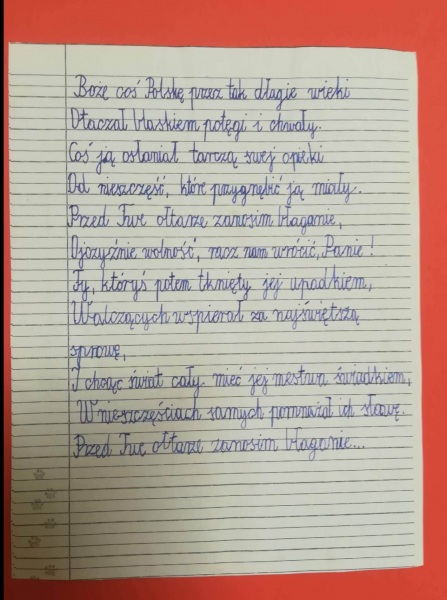 Boże coś Polskę przez tak długie wieki
Otaczał blaskiem potęgi i chwały.
Coś ją osłaniał tarczą swej opieki
Od nieszczęść, które przygnębić ją miały.
Przed Twe ołtarze zanosim błaganie,
Ojczyźnie wolność, racz nam wrócić, Panie!
Ty, któryś potem tknięty jej upadkiem,
Walczących wspierał za najświętszą
sprawę,
I chcąc świat cały mieć jej męstwa świadkiem,
W nieszczęściach samych pomnażał ich sławę.
Przed Twe ołtarze zanosim błaganie...